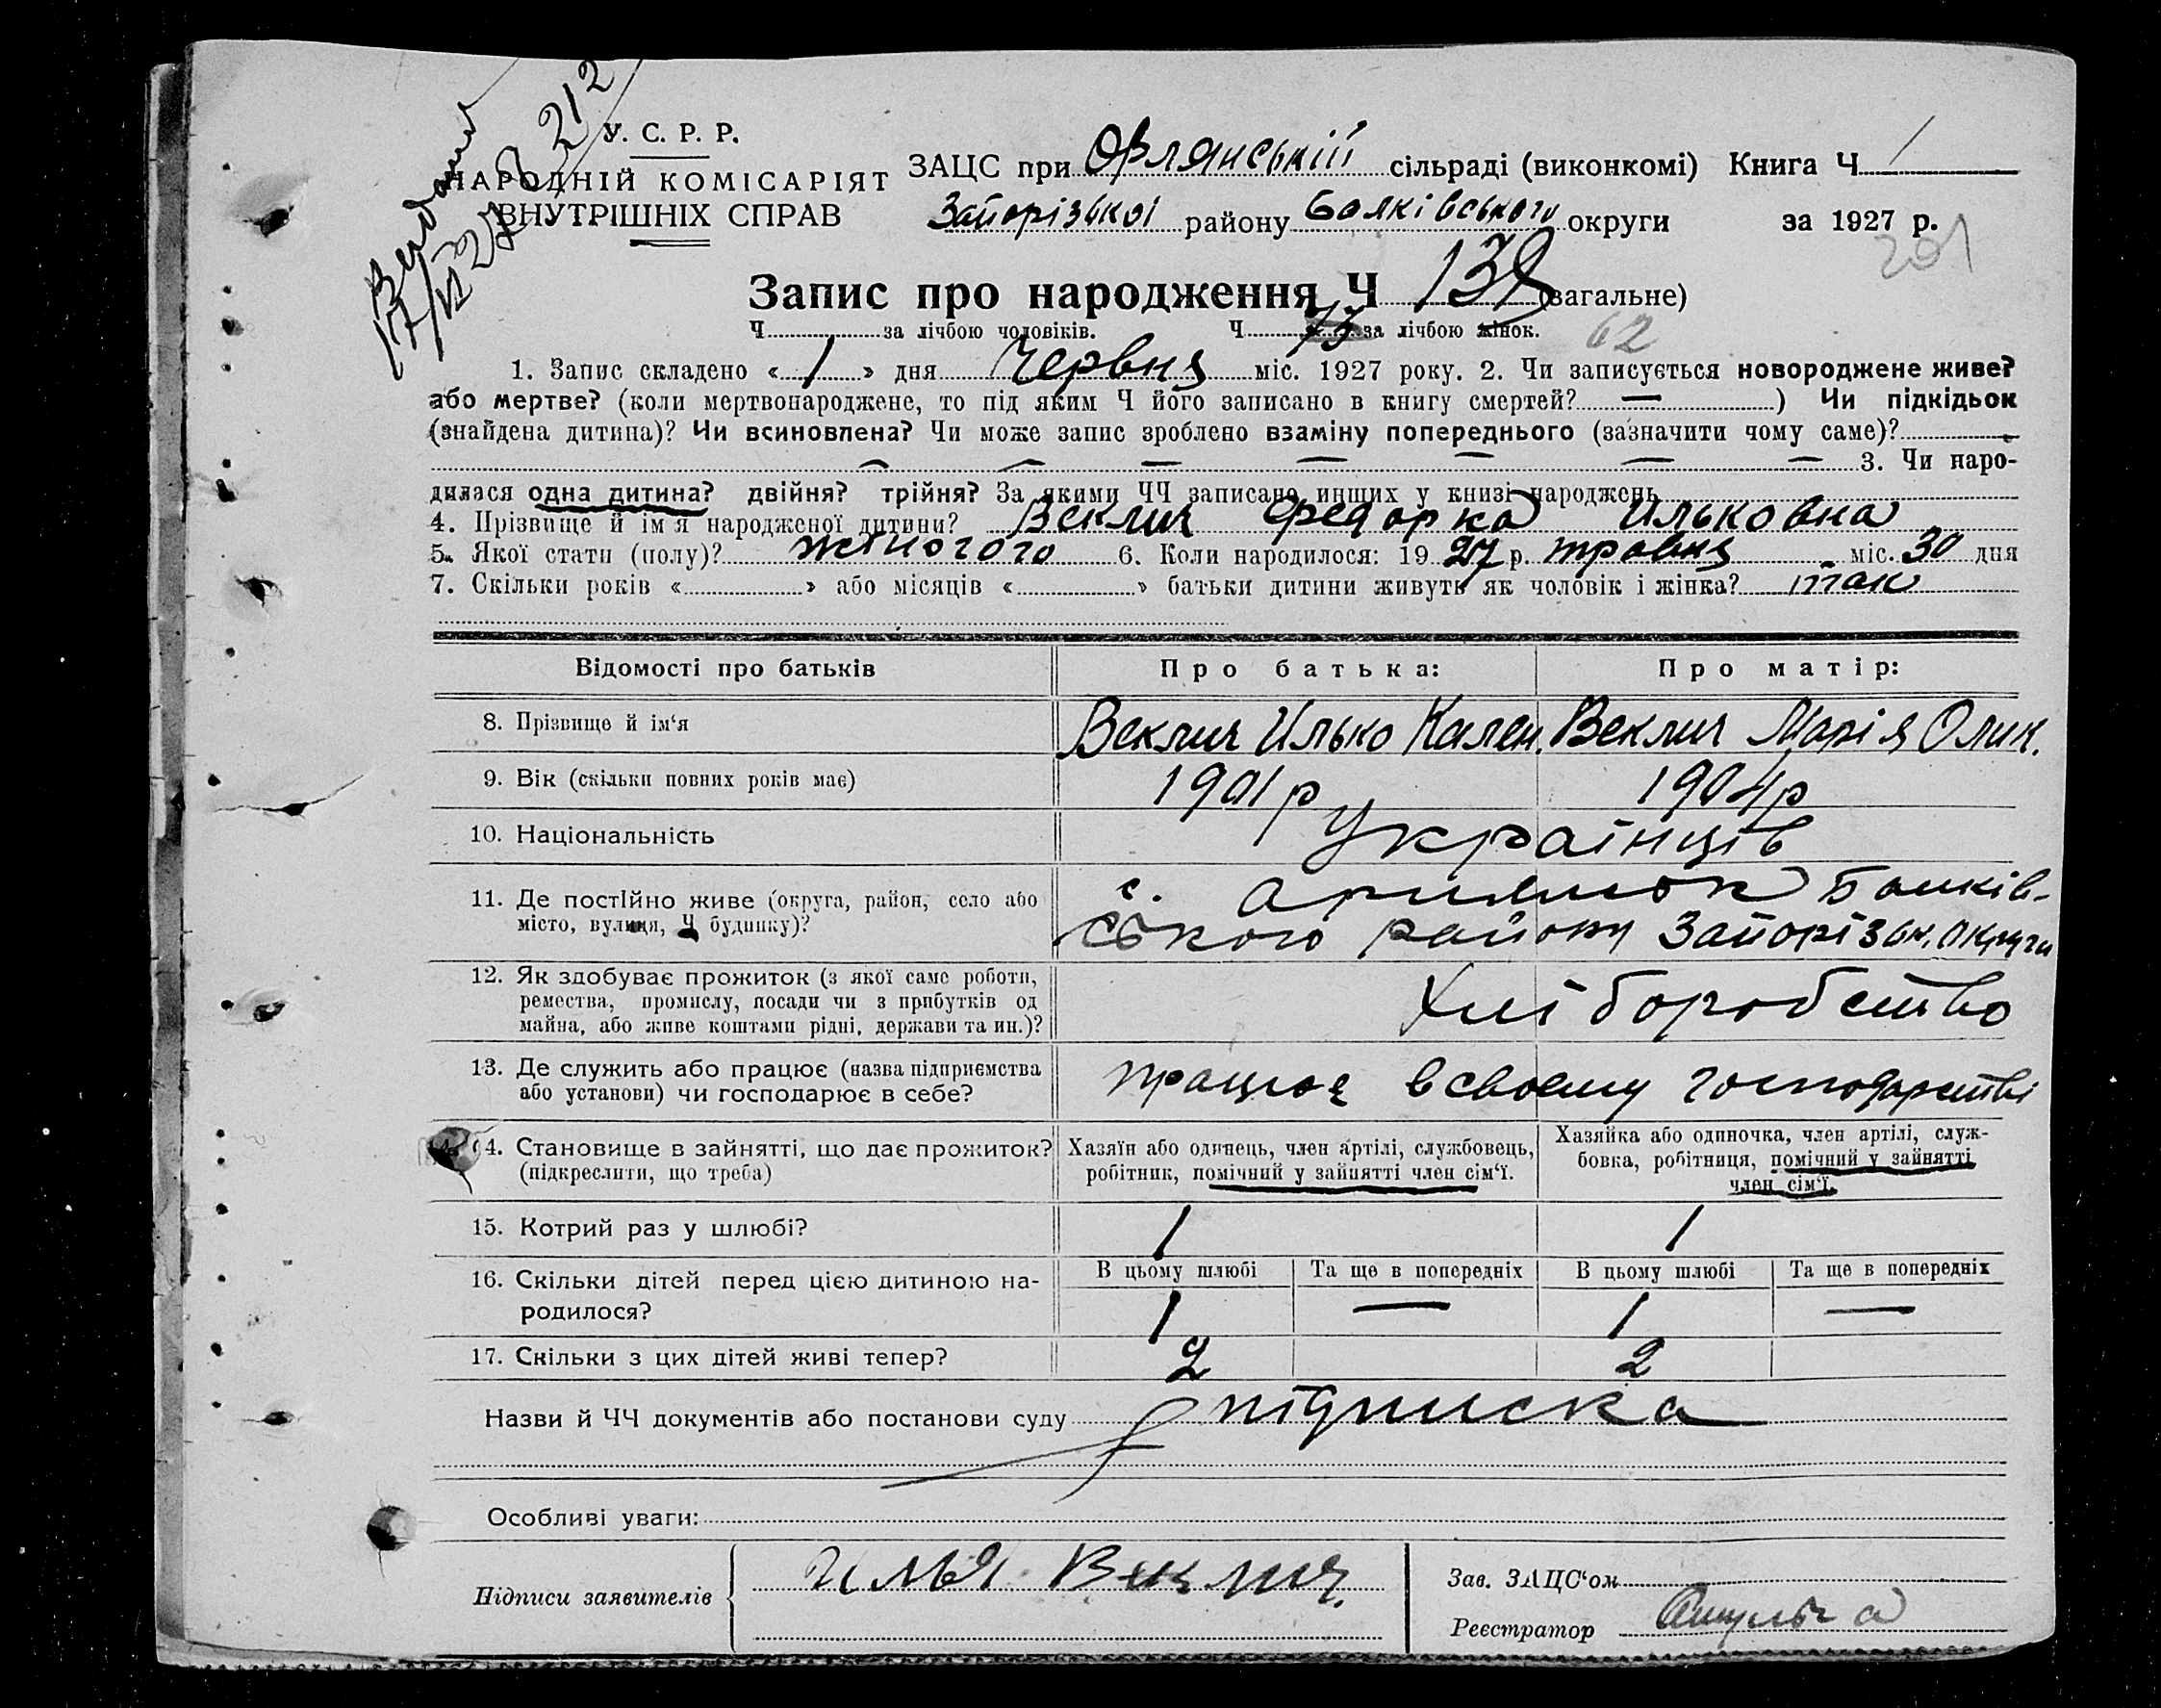 У. С. Р. Р.
НАРОДНІЙ КОМІСАРІЯТ
ВНУТРІШНІХ СПРАВ
212
ЗАЦС при Орлянській сільраді (виконкомі) Книга Ч 1
Запорізькоі району Балківського округи за 1927 р.
201
Запис про народження Ч 139 (загальне)
Ч за лічбою чоловіків. Ч 73 за лічбою жінок. 62
1. Запис складено « 1 » дня Червня міс. 1927 року. 2. Чи записується новороджене живе?
або мертве? (коли мертвонароджене, то під яким Ч його записано в книгу смертей? — ) Чи підкідьок
(знайдена дитина)? Чи всиновлена? Чи може запис зроблено взаміну попереднього (зазначити чому саме)?
— — — — — — — 3. Чи наро-
дилася одна дитина? двійня? трійня? За якими ЧЧ записано инших у книзі народжень
4. Прізвище й ім'я народженої дитини? Веклич Федорка Ильковна
5. Якої стати (полу)? жіночого 6. Коли народилося: 19 27 р. травня міс. 30 дня
7. Скільки років « » або місяців « » батьки дитини живуть як чоловік і жінка? так
Відомості про батьків Про батька: Про матір:
8. Прізвище й ім'я Веклич Илько Кален. Веклич Марія Олик.
9. Вік (скільки повних років має) 1901 р 1904 р
10. Національність Українців
11. Де постійно живе (округа, район, село або
місто, вулиця, Ч будинку)?
с. Балків-
ського району Запорізьк. округи
12. Як здобуває прожиток (з якої саме роботи,
ремества, промислу, посади чи з прибутків од
майна, або живе коштами рідні, держави та ин.)?
Хліборобство
13. Де служить або працює (назва підприємства
або установи) чи господарює в себе?
працює в своєму господарстві
14. Становище в зайнятті, що дає прожиток?
(підкреслити, що треба)
Хазяїн або одинець, член артілі, службовець,
робітник, помічний у зайнятті член сім'ї.
Хазяйка або одиночка, член артілі, служ-
бовка, робітниця, помічний у зайнятті
член сім'ї.
15. Котрий раз у шлюбі? 1 1
16. Скільки дітей перед цією дитиною на-
родилося?
В цьому шлюбі Та ще в попередніх В цьому шлюбі Та ще в попередніх
1 — 1 —
17. Скільки з цих дітей живі тепер? 2 2
Назви й ЧЧ документів або постанови суду підписка
Особливі уваги:
Підписи заявителів Илья Веклич.
Зав. ЗАЦС'ом
Реєстратор